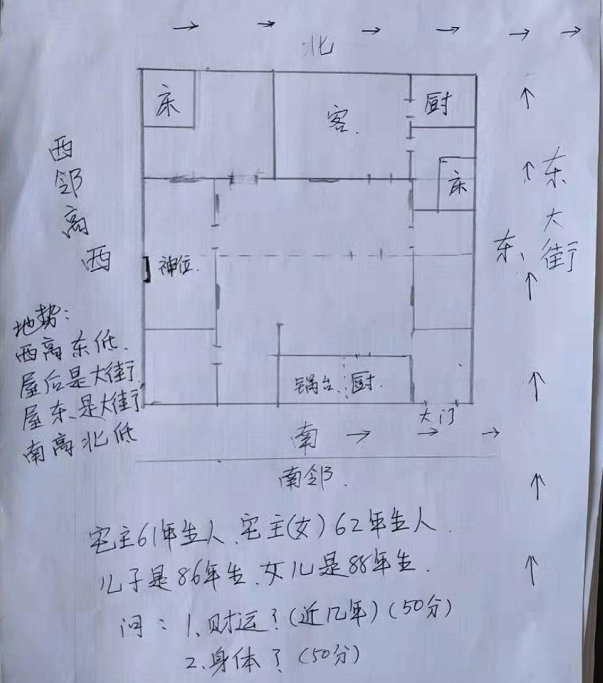 北
床
客.
厨
床
西邻高
西
神位.
东大街
东、
地势:
西高东低.
屋后是大街
屋东、是大街
南高北低
锅台.厨
大门
南
南邻.
宅主61年生人、宅主(女)62年生人.
儿子是86年生、女儿是88年生.
问: 1、财运?(近几年)(50分)
2、身体?(50分)